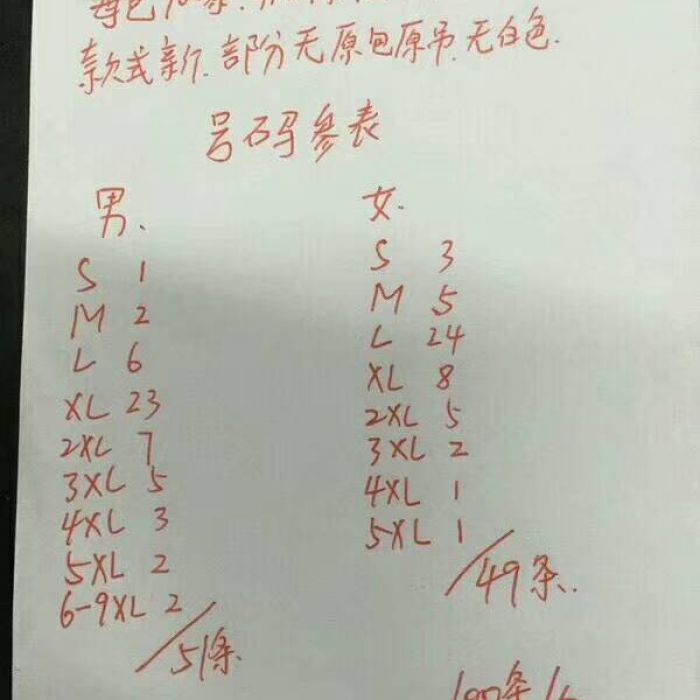 款式新.部分无原包原吊.无白色.
号码参表
男.
S 1
M 2
L 6
XL 23
2XL 7
3XL 5
4XL 3
5XL 2
6-9XL 2
/51条
女.
S 3
M 5
L 24
XL 8
2XL 5
3XL 2
4XL 1
5XL 1
/49条.
100条/